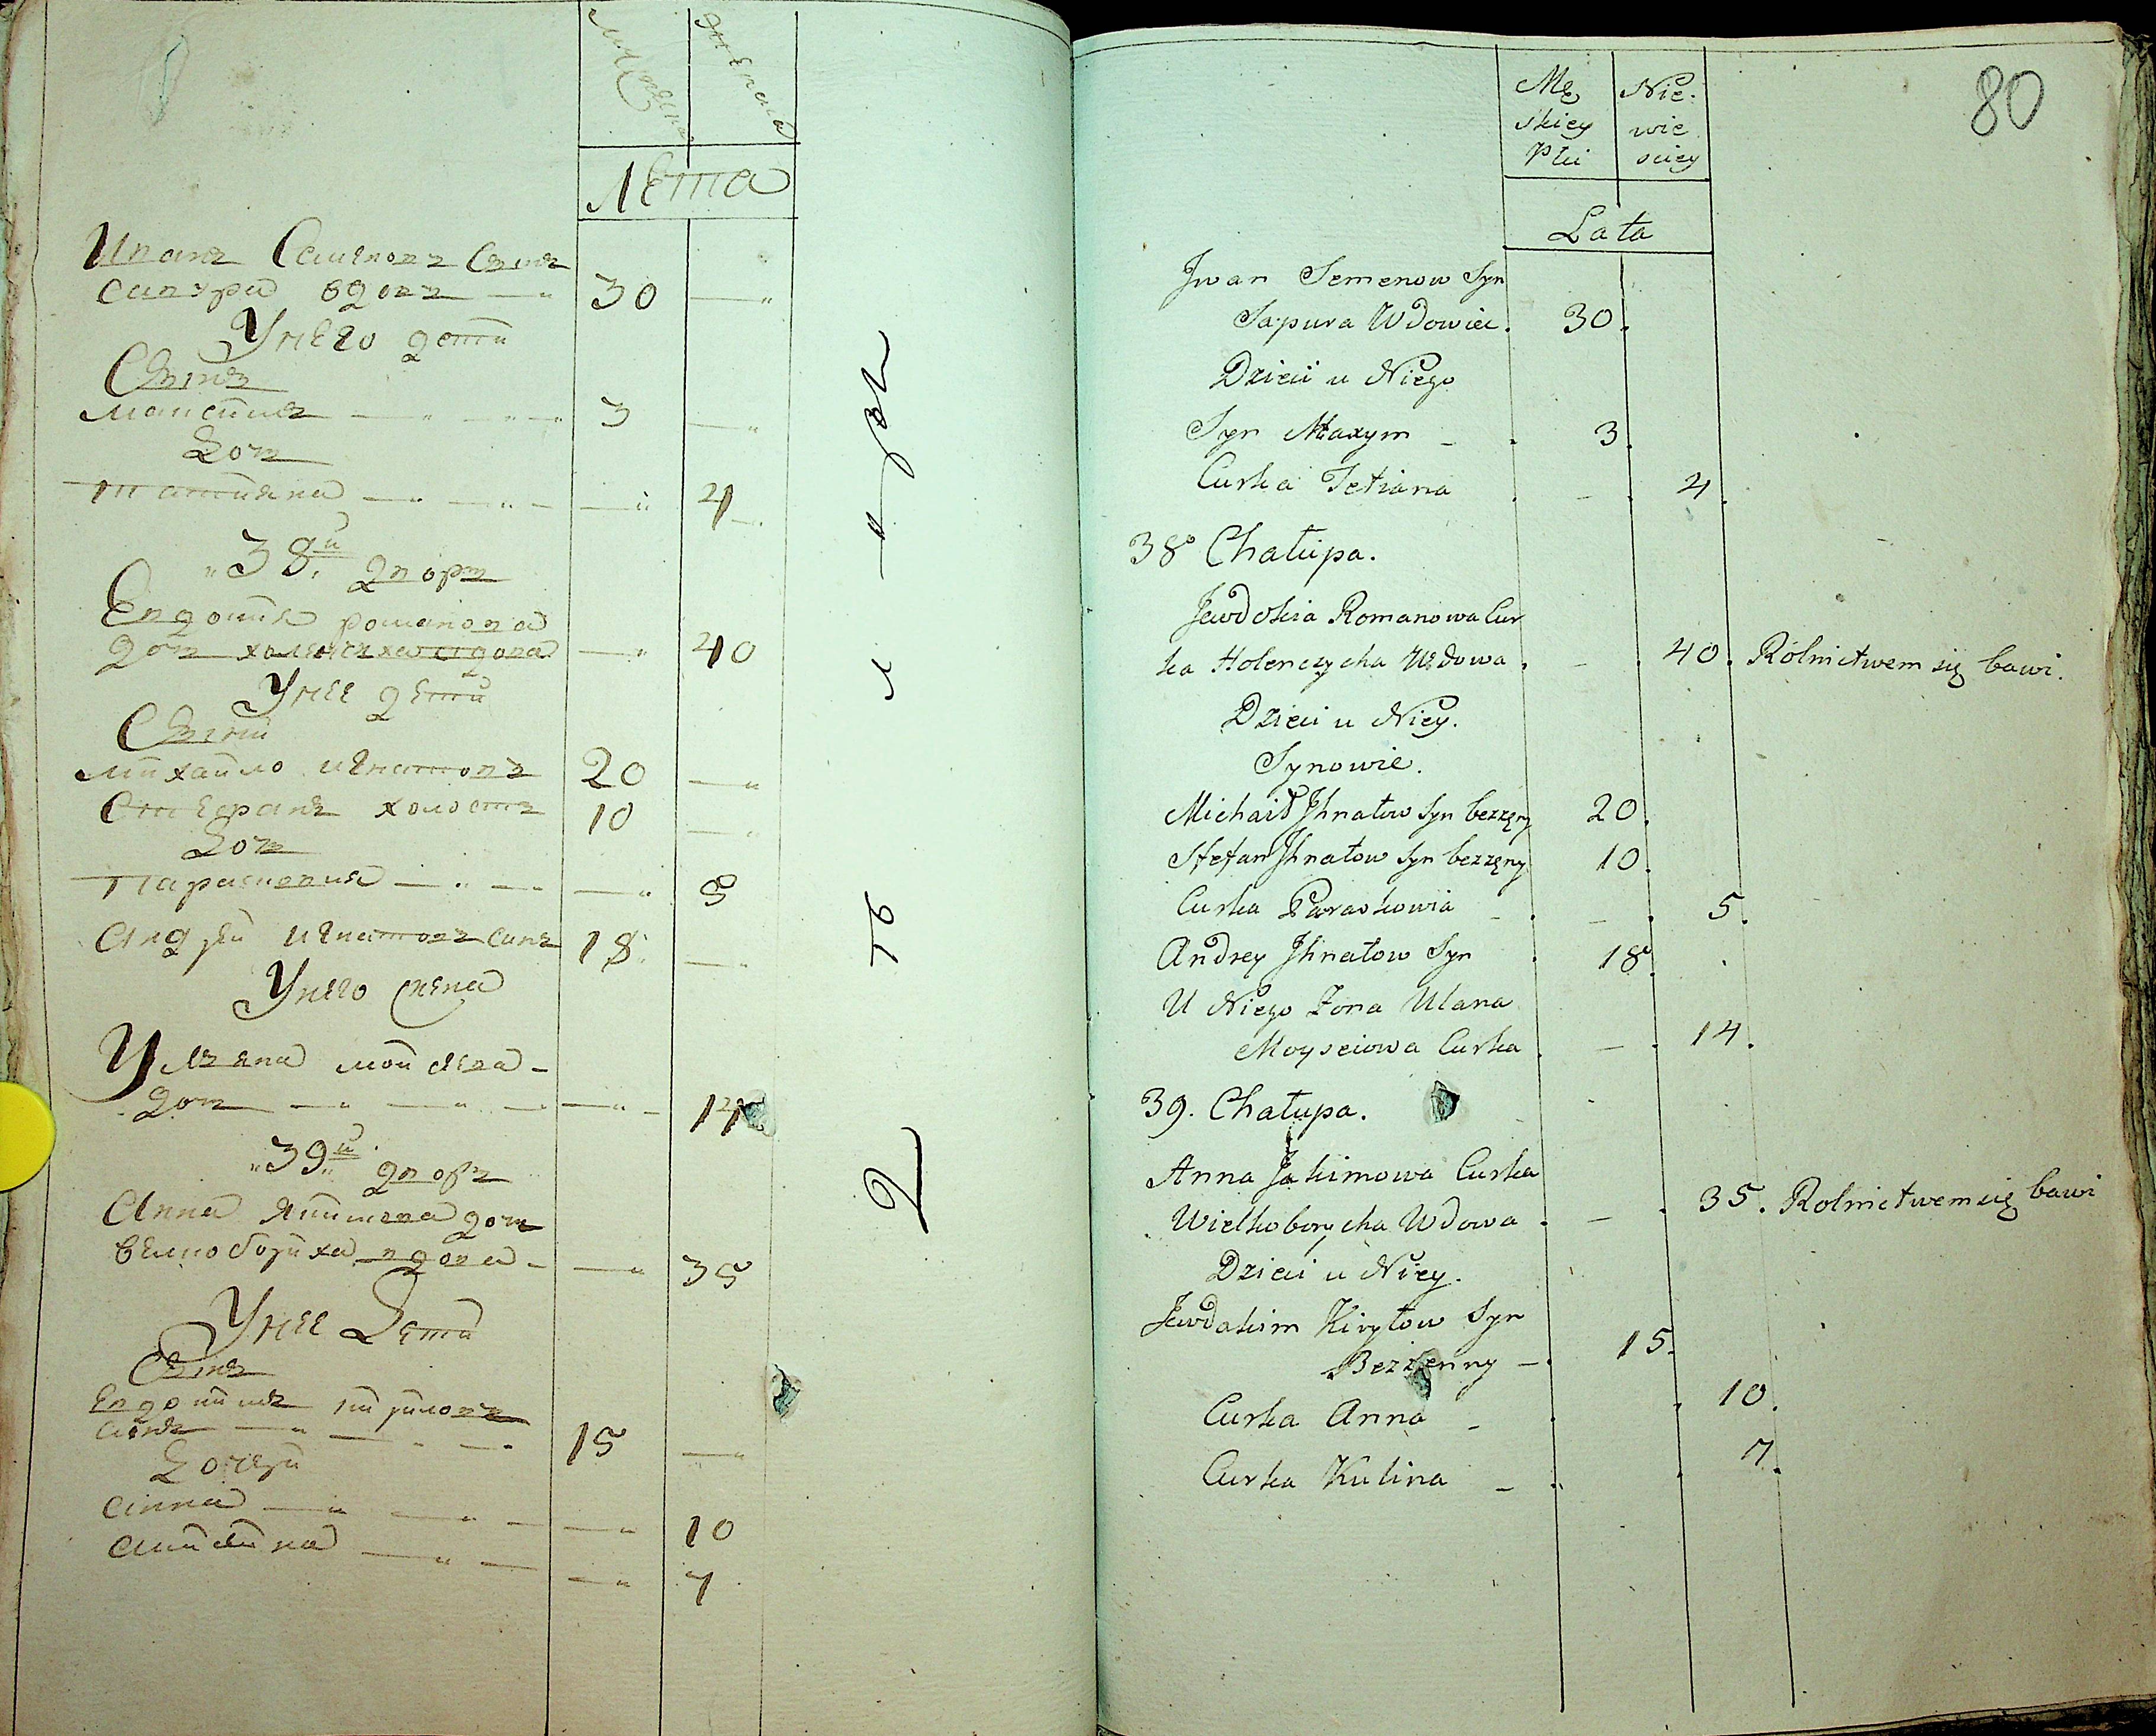 Мужеска
Женска
Лета
Иванъ Семеновъ Сынъ
Сапура вдовъ 30
У него дети
Сынъ
Максимъ 3
Доч
Татияна 4
38й дворъ
Евдокия Романова
доч холенчиха вдова 40
У нее дети
Сыны
Михайло Игнатовъ 20
Стефанъ холостъ 10
Доч
Парасковия 5
Андрей Игнатовъ сынъ 18
У него жена
Ульяна Мойсеева
доч 14
39й дворъ
Анна Якимова доч
великобориха вдова 35
У нее Дети
Сынъ
Евдокимъ Кириловъ
сынъ 15
Дочери
Анна 10
Акилина 7
80
Mę Nie
skiey wie
Płci sciey
Lata
Jwan Semenow Syn
Sapura Wdowiec. 30.
Dzieci u Niego
Syn Maxym 3.
Curka Tetiana 4.
38 Chałupa.
Jewdokia Romanowa Cur
ka Holenczycha Wdowa. 40. Rolnictwem się bawi.
Dzieci u Niey.
Synowie.
Michaił Jhnatow Syn bezzęny 20.
Stefan Jhnatow Syn bezzęny 10.
Curka Paraskowia 5.
Andrey Jhnatow Syn 18.
U Niego Żona Ulana
Moyseiowa Curka 14.
39. Chałupa.
Anna Jakimowa Curka
Wielkoborycha Wdowa. 35. Rolnictwem się bawi
Dzieci u Niey.
Jewdakim Kiryłow Syn
Bezzenny 15.
Curka Anna 10.
Curka Kulina 7.